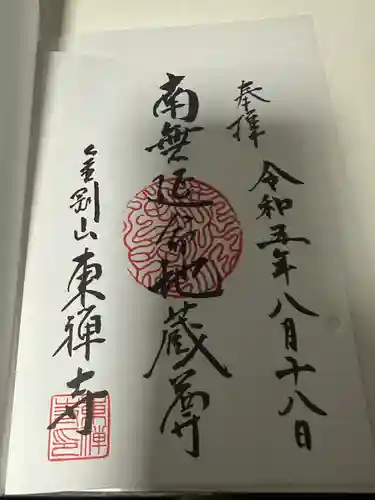 奉拝
令和五年八月十八日
南無延命地蔵尊
金剛山
東禅寺